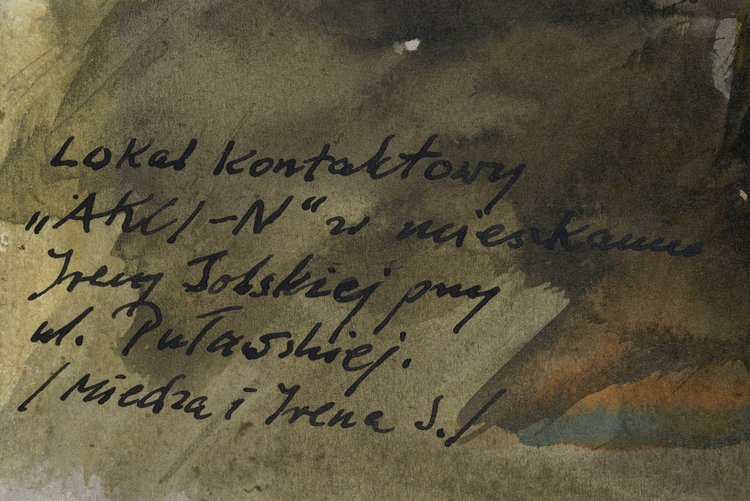 Lokal kontaktowy
„AKCJ-N“ w mieszkaniu
Ireny Solskiej przy
ul. Puławskiej.
/Miedza i Irena S./